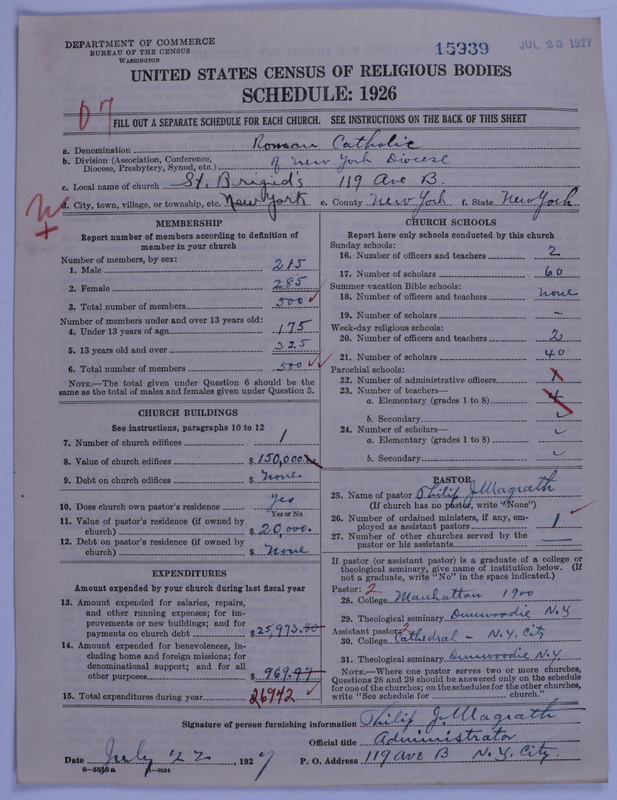 DEPARTMENT OF COMMERCE
BUREAU OF THE CENSUS
WASHINGTON
15939
JUL 25 1927
UNITED STATES CENSUS OF RELIGIOUS BODIES
SCHEDULE: 1926
07
FILL OUT A SEPARATE SCHEDULE FOR EACH CHURCH. SEE INSTRUCTIONS ON THE BACK OF THIS SHEET
a. Denomination Roman Catholic
b. Division (Association, Conference, Diocese, Presbytery, Synod, etc.) of New York Diocese
c. Local name of church St. Brigid's 119 Ave B.
d. City, town, village, or township, etc. New York e. County New York f. State New York
MEMBERSHIP
Report number of members according to definition of member in your church
Number of members, by sex:
1. Male 215
2. Female 285
3. Total number of members 500
Number of members under and over 13 years old:
4. Under 13 years of age 175
5. 13 years old and over 325
6. Total number of members 500
NOTE.—The total given under Question 6 should be the same as the total of males and females given under Question 3.
CHURCH BUILDINGS
See instructions, paragraphs 10 to 12
7. Number of church edifices 1
8. Value of church edifices $ 150,000.00
9. Debt on church edifices $ None
10. Does church own pastor's residence yes
Yes or No
11. Value of pastor's residence (if owned by church) $ 20,000.
12. Debt on pastor's residence (if owned by church) $ None
EXPENDITURES
Amount expended by your church during last fiscal year
13. Amount expended for salaries, repairs, and other running expenses; for improvements or new buildings; and for payments on church debt $ 25,973.50
14. Amount expended for benevolences, including home and foreign missions; for denominational support; and for all other purposes $ 969.47
15. Total expenditures during year 26942
CHURCH SCHOOLS
Report here only schools conducted by this church
Sunday schools:
16. Number of officers and teachers 2
17. Number of scholars 60
Summer vacation Bible schools:
18. Number of officers and teachers none
19. Number of scholars –
Week-day religious schools:
20. Number of officers and teachers 2
21. Number of scholars 40
Parochial schools:
22. Number of administrative officers 1
23. Number of teachers—
a. Elementary (grades 1 to 8) 4
b. Secondary
24. Number of scholars—
a. Elementary (grades 1 to 8)
b. Secondary
PASTOR
25. Name of pastor Philip J. Magrath
(If church has no pastor, write "None")
26. Number of ordained ministers, if any, employed as assistant pastors 1
27. Number of other churches served by the pastor or his assistants —
If pastor (or assistant pastor) is a graduate of a college or theological seminary, give name of institution below. (If not a graduate, write "No" in the space indicated.)
Pastor: 2
28. College Manhattan 1900
29. Theological seminary Dunwoodie N.Y
Assistant pastor: 2
30. College Cathedral – N.Y. City
31. Theological seminary Dunwoodie N.Y.
NOTE.—Where one pastor serves two or more churches, Questions 28 and 29 should be answered only on the schedule for one of the churches; on the schedules for the other churches, write "See schedule for church."
Signature of person furnishing information Philip J. Magrath
Official title Administrator
Date July 22, 1927 P. O. Address 119 Ave B N.Y. City.